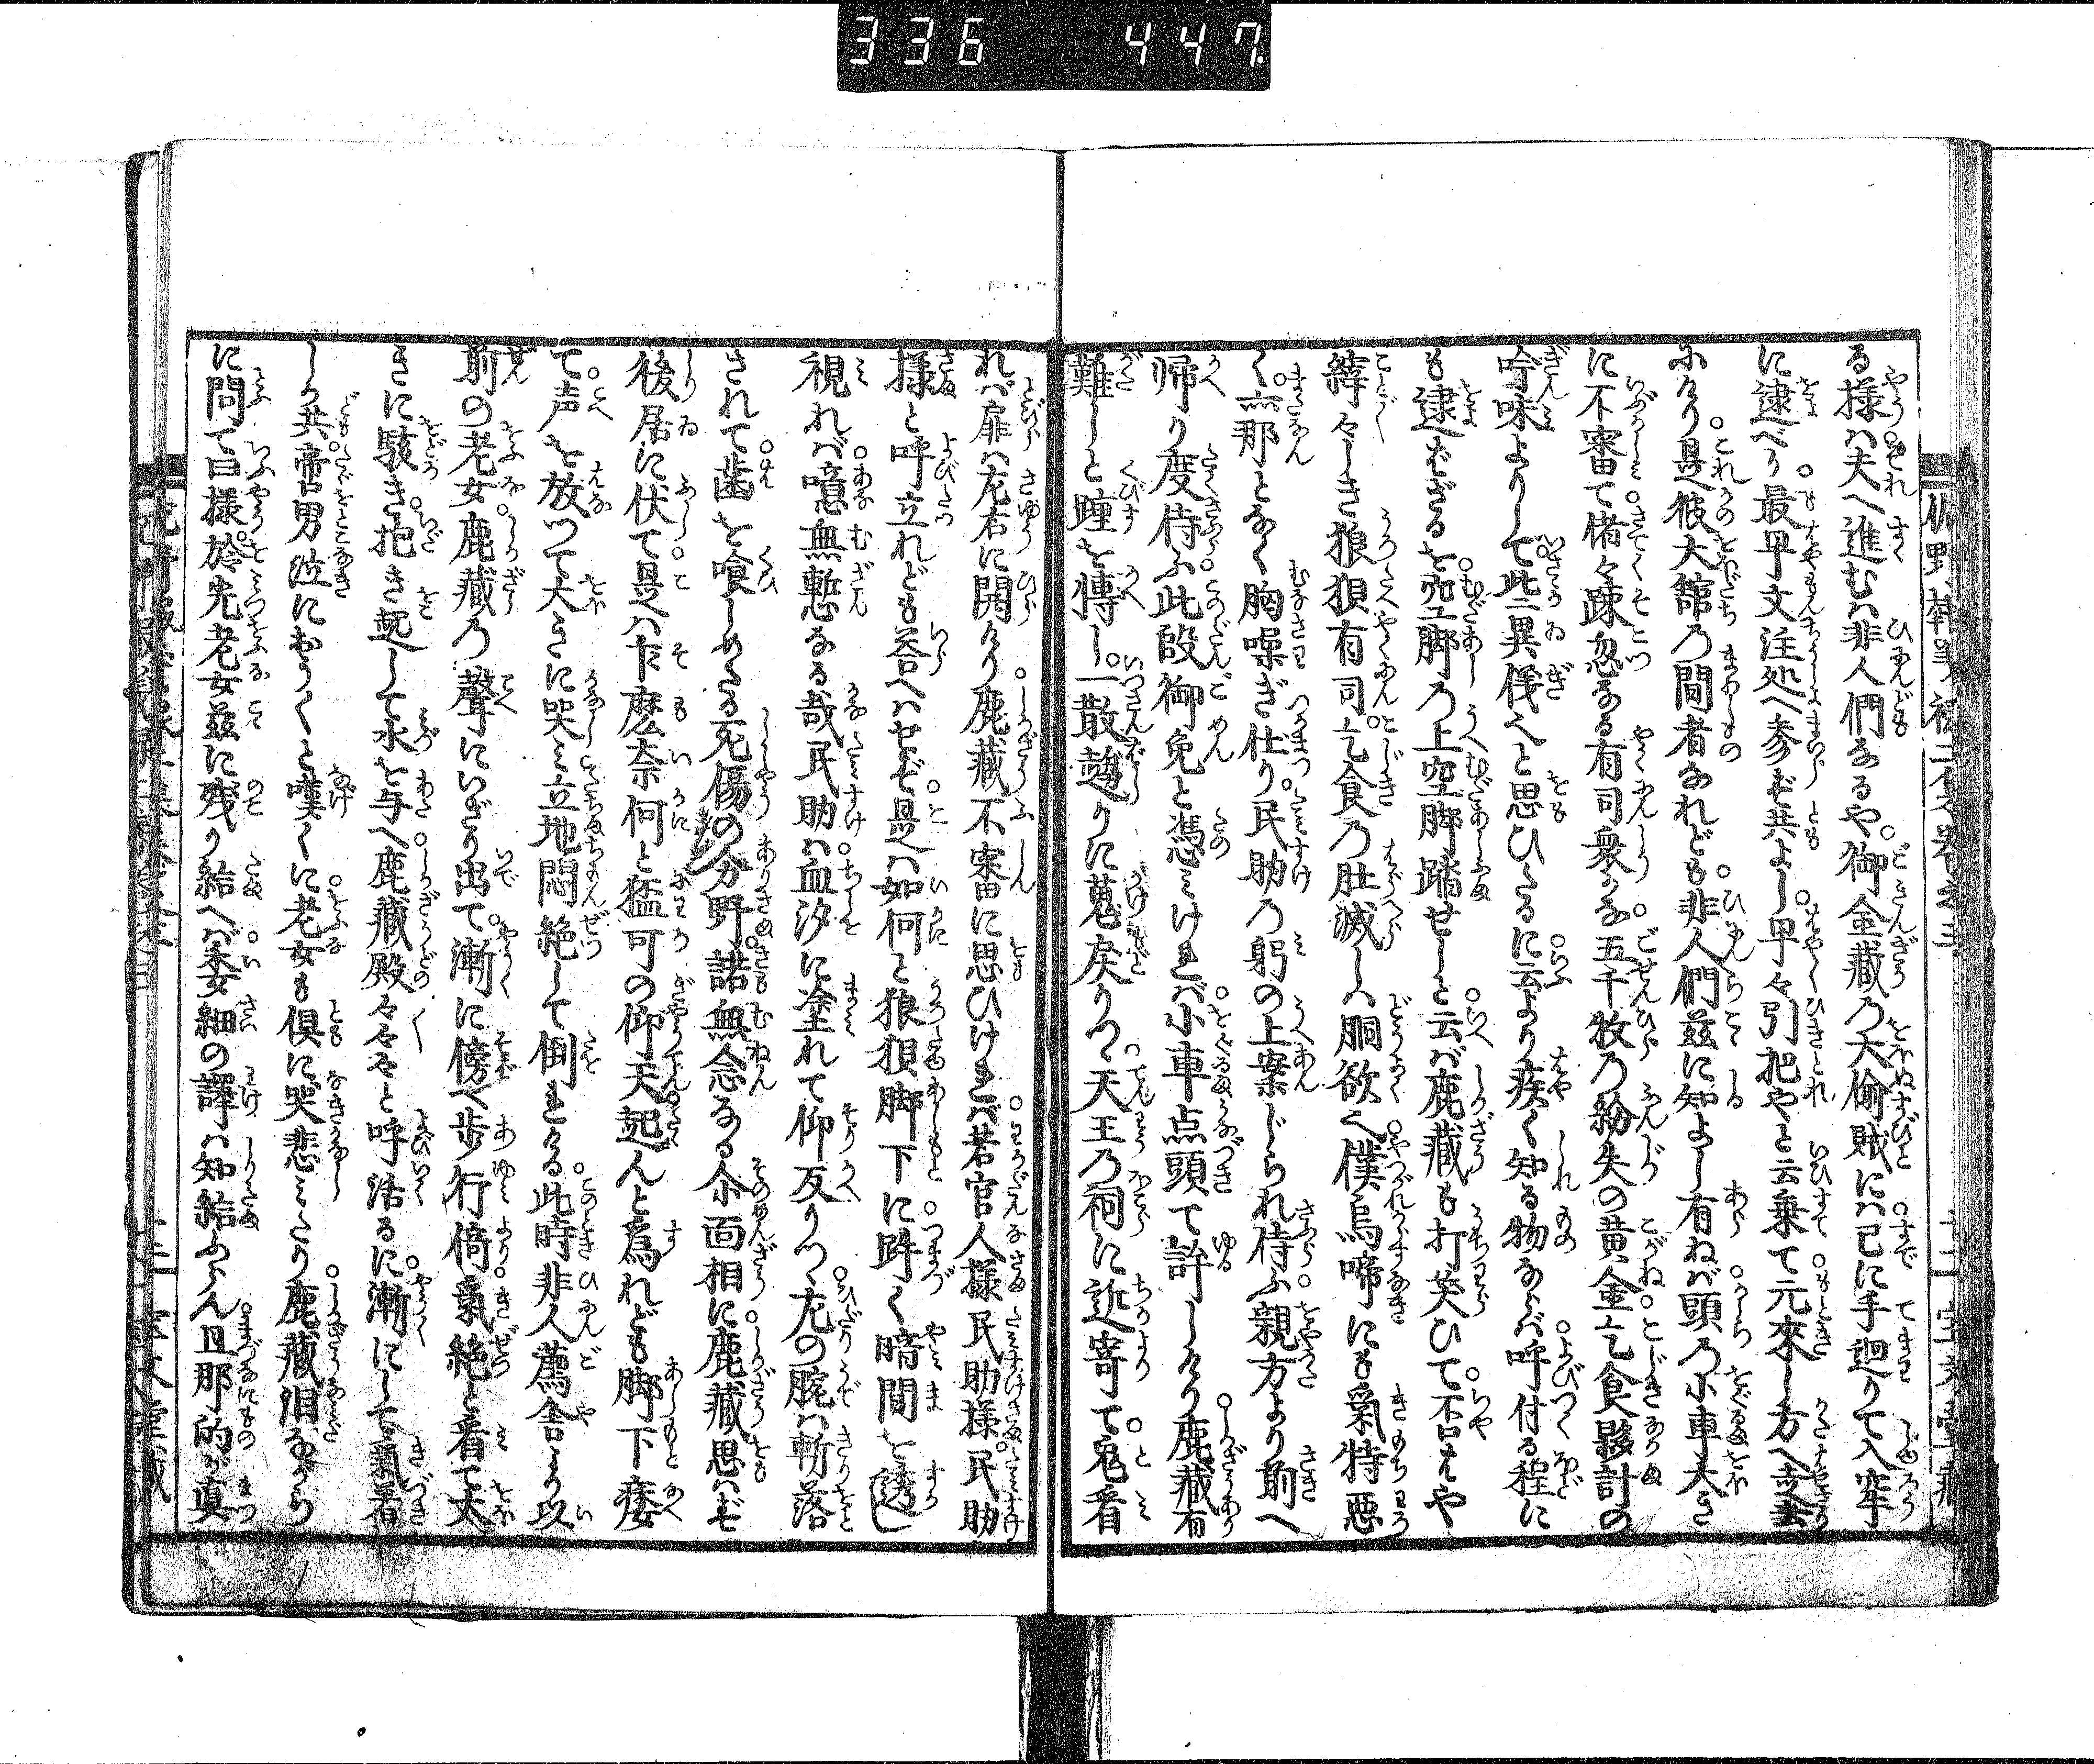 336 447
る様ハ夫へ進むハ非人們なるや。御金藏乃大偷賊にハ已に手廻りて入牢
に逮べり。最早文注処へ参ぜ共よし。早々引把やと云乗て元來し方へ
なり。是彼大舘乃間者なれども。非人們茲に知よし有ねバ頭乃小車大き
に不審て偖々疎忽なる有司衆かな。五千牧乃紛失の黄金乞食夥計の
吟味よりして。此一異儀之と思ひたるに。云より疾く知る物ならバ。呼付る程に
も逮ばざるを。空脚乃上空脚踏せしと。云バ鹿藏も打笑ひて。否はや
縡々しき狼狽有司。乞食乃肚減しハ胴欲之。僕烏啼にも氣特惡
く。六那となく胸噪ぎ仕り。民助乃躬の上案じられ侍ふ。親方より前へ
帰り度侍ふ。此段御免と憑ミけれバ。小車点頭て許しけり。鹿藏有
難しと踵を慱し。一散趨りに蒐戻りつゝ。天王乃祠に近寄て。鬼看
れバ扉ハ左右に開けり。鹿藏不審に思ひけれバ。若官人様民助様。民助
様と呼立れども答へハせず。是ハ如何と狼狽脚下に。跘く暗間を透し
視れバ。噫無慙なる哉民助ハ。血汐に塗れて仰反りつゝ。左の腕ハ斬落
されて。歯を喰しめたる死傷の分野。諾無念なる尒面相に。鹿藏思ハず
後居に伏て。是ハ什麽奈何と猛可の仰天。起んと為れども脚下痿
て。声を放つて大きに哭ミ立地悶絶して倒れける。此時非人薦舎より以
前の老女。鹿藏乃聲にいざり出て。漸に傍へ歩行倚。氣絶と看て大
きに駭き。抱き起して水を与へ。鹿藏殿々々々と呼活るに。漸にして氣着
しか共。啼男泣におう〱と嘆くに。老女も倶に哭悲ミたり。鹿藏泪ながら
に問て曰様。於先老女茲に殘り給へバ。委細の譯ハ知給ふらん。且那的が眞